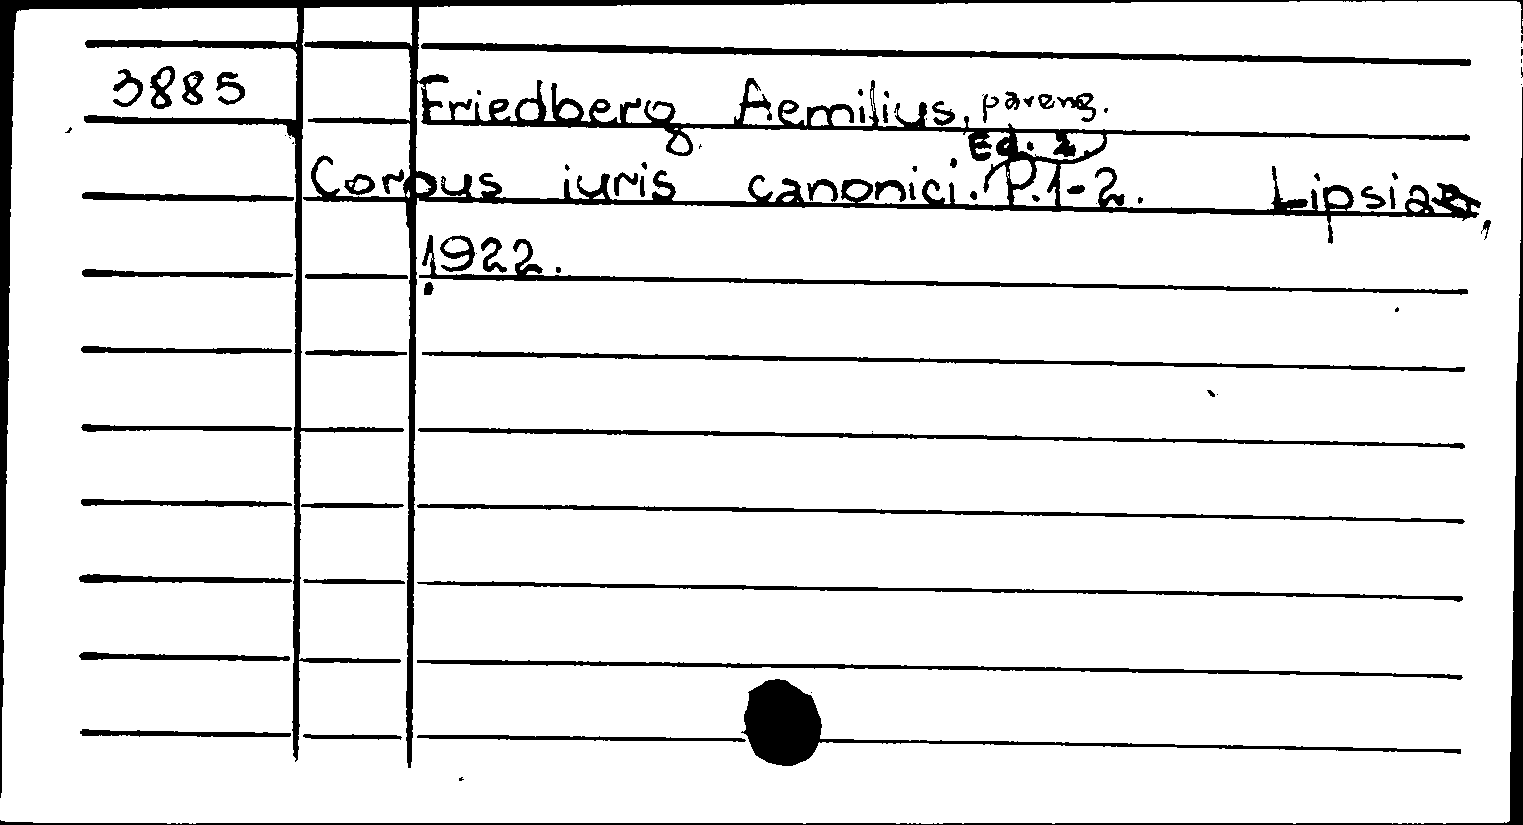 3885 Friedberg Aemilius, pareng.
Corpus iuris canonici. Ed. 2. P. 1-2. Lipsiae,
1922.